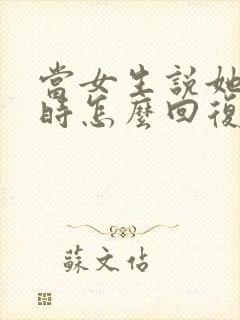 當女生說她
時怎麼回復
蘇文佑